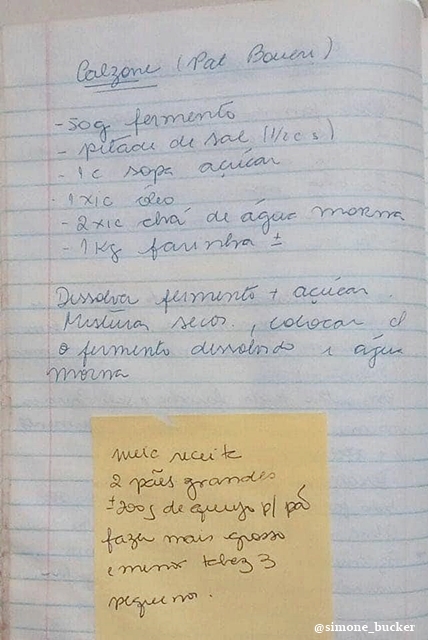 Calzone (Pat Boueri)
- 50g fermento
- pitada de sal (1/2 c s)
- 1 c sopa açúcar
- 1 xic óleo
- 2 xic chá de água morna
- 1 Kg farinha ±
Dissolva fermento + açúcar.
Misturar secos, colocar
o fermento dissolvido e água
morna
meia receita
2 pães grandes
± 200g de queijo p/ pão
fazer mais grosso
e menor talvez 3
pequenos.
@simone_bucker